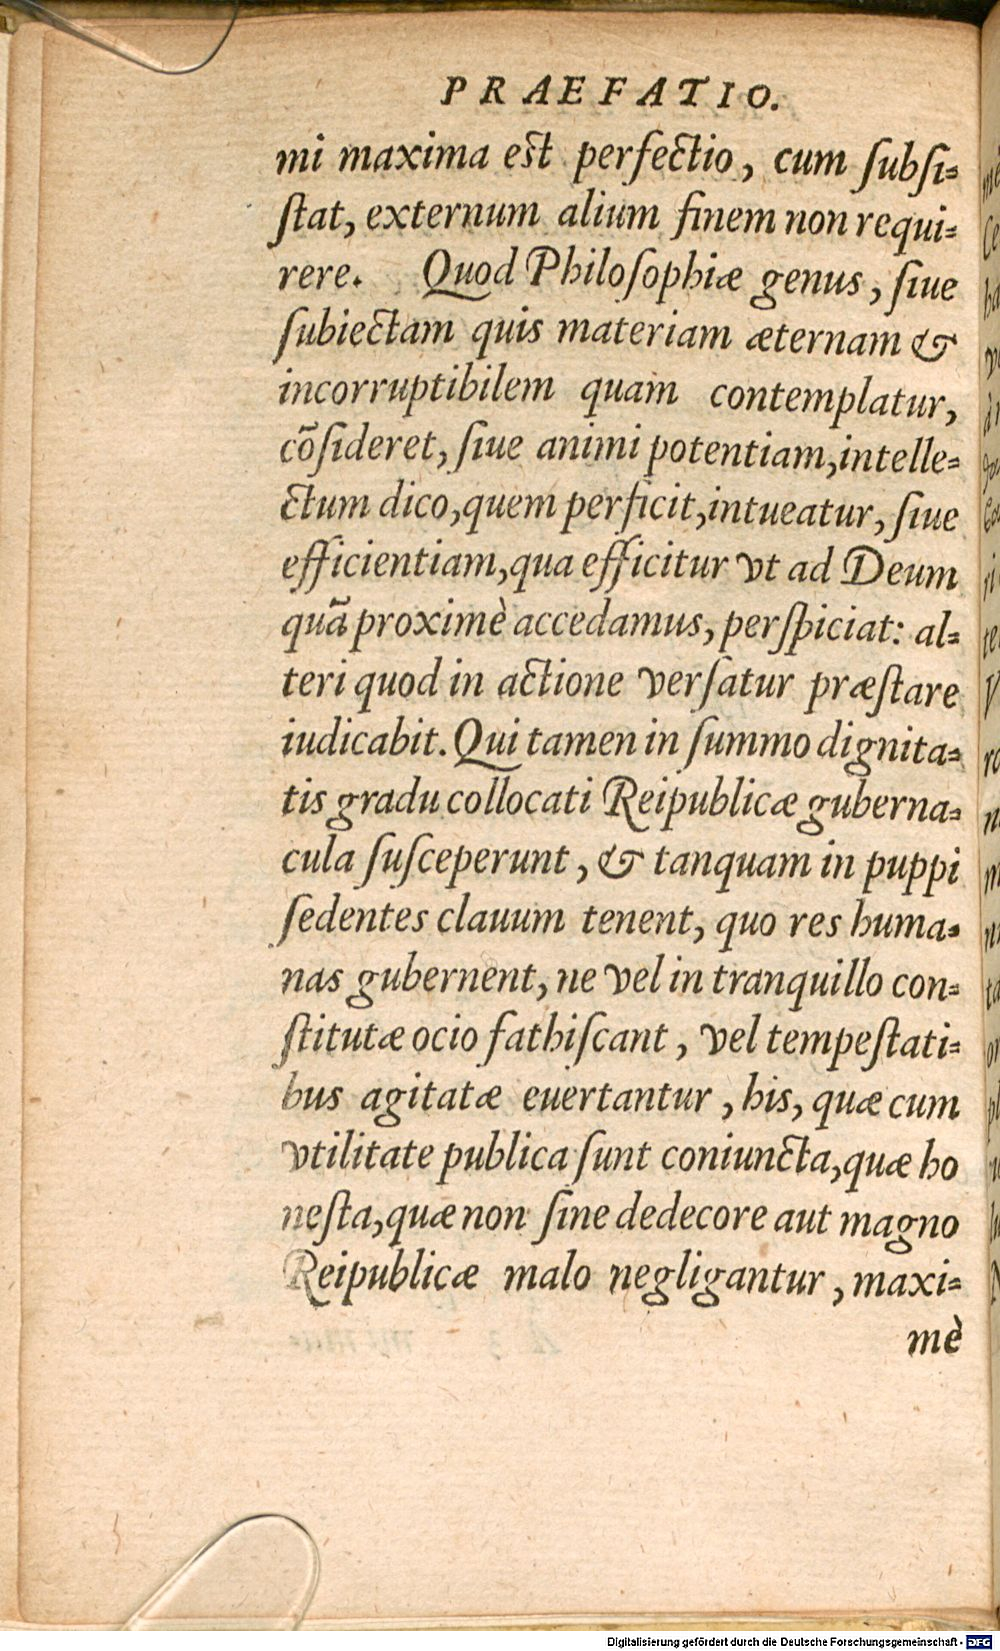 PRAEFATIO.
mi maxima est perfectio, cum ſubſi-
ſtat, externum alium finem non requi-
rere. Quod Philoſophiæ genus, ſiue
ſubiectam quis materiam æternam &
incorruptibilem quam contemplatur,
cõſideret, ſiue animi potentiam, intelle-
ctum dico, quem perficit, intueatur, ſiue
efficientiam, qua efficitur vt ad Deum
quã proximè accedamus, perſpiciat: al-
teri quod in actione verſatur præſtare
iudicabit. Qui tamen in ſummo dignita-
tis gradu collocati Reipublicæ guberna-
cula ſuſceperunt, & tanquam in puppi
ſedentes clauum tenent, quo res huma-
nas gubernent, ne vel in tranquillo con-
ſtitutæ ocio fathiſcant, vel tempeſtati-
bus agitatæ euertantur, his, quæ cum
vtilitate publica ſunt coniuncta, quæ ho
neſta, quæ non ſine dedecore aut magno
Reipublicæ malo negligantur, maxi-
mè
Digitalisierung gefördert durch die Deutsche Forschungsgemeinschaft - DFG